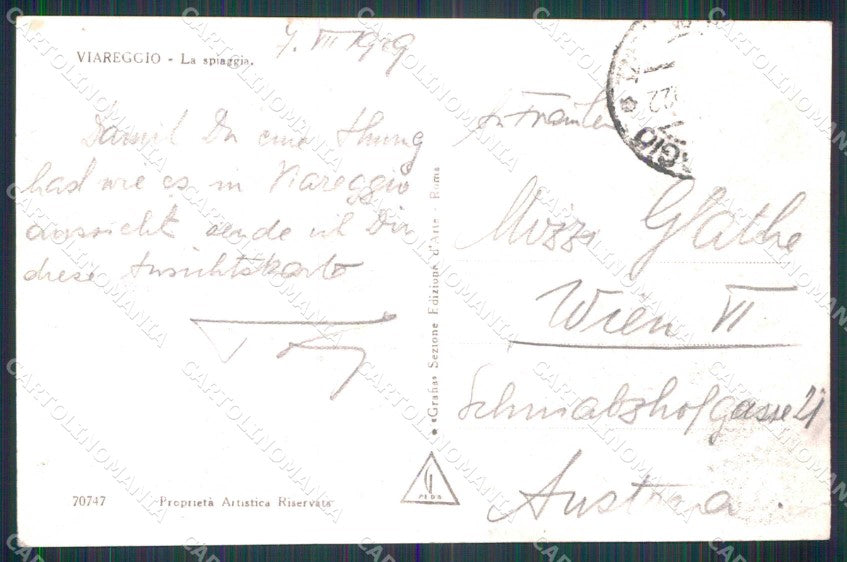 VIAREGGIO - La spiaggia.
7. VII 1929
Damit Du eine Ahnung
hast wie es in Viareggio
aussieht sende ich Dir
diese Ansichtskarte
Fräulein
Mizzi Glathe
Wien VI
Schmalzhofgasse 21
Austria
«Grafia» Sezione Edizione d'Arte - Roma
70747 Proprietà Artistica Riservata
CARTOLINOMANIA